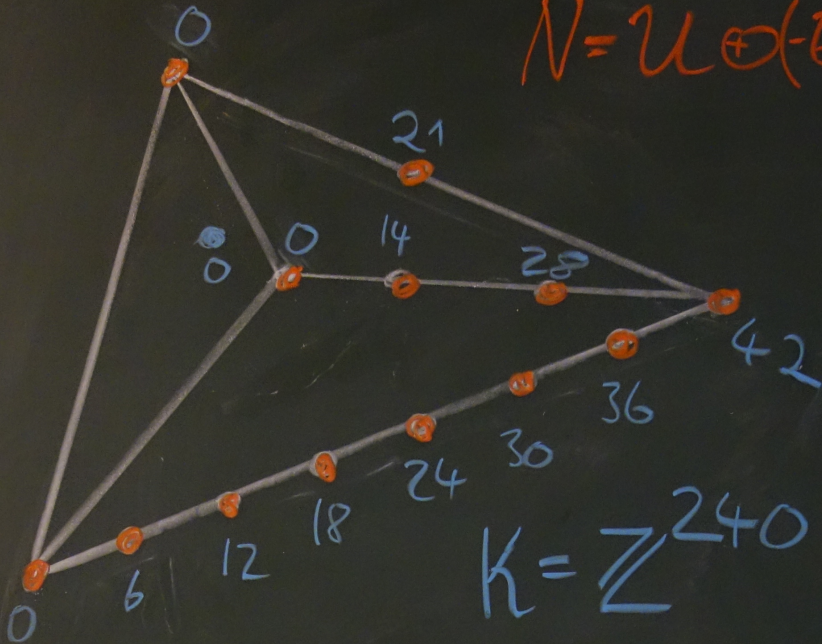 0
N=U⊕(-E
21
0
14
28
0
42
36
30
24
18
12
6
0
K=ℤ^240